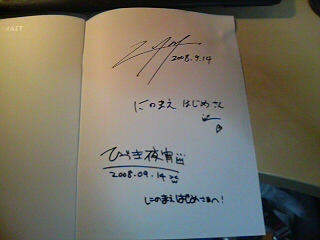 2008.9.14
にのまえ はじめさん
ひづき夜宵
2008.09.14
にのまえはじめさまへ!